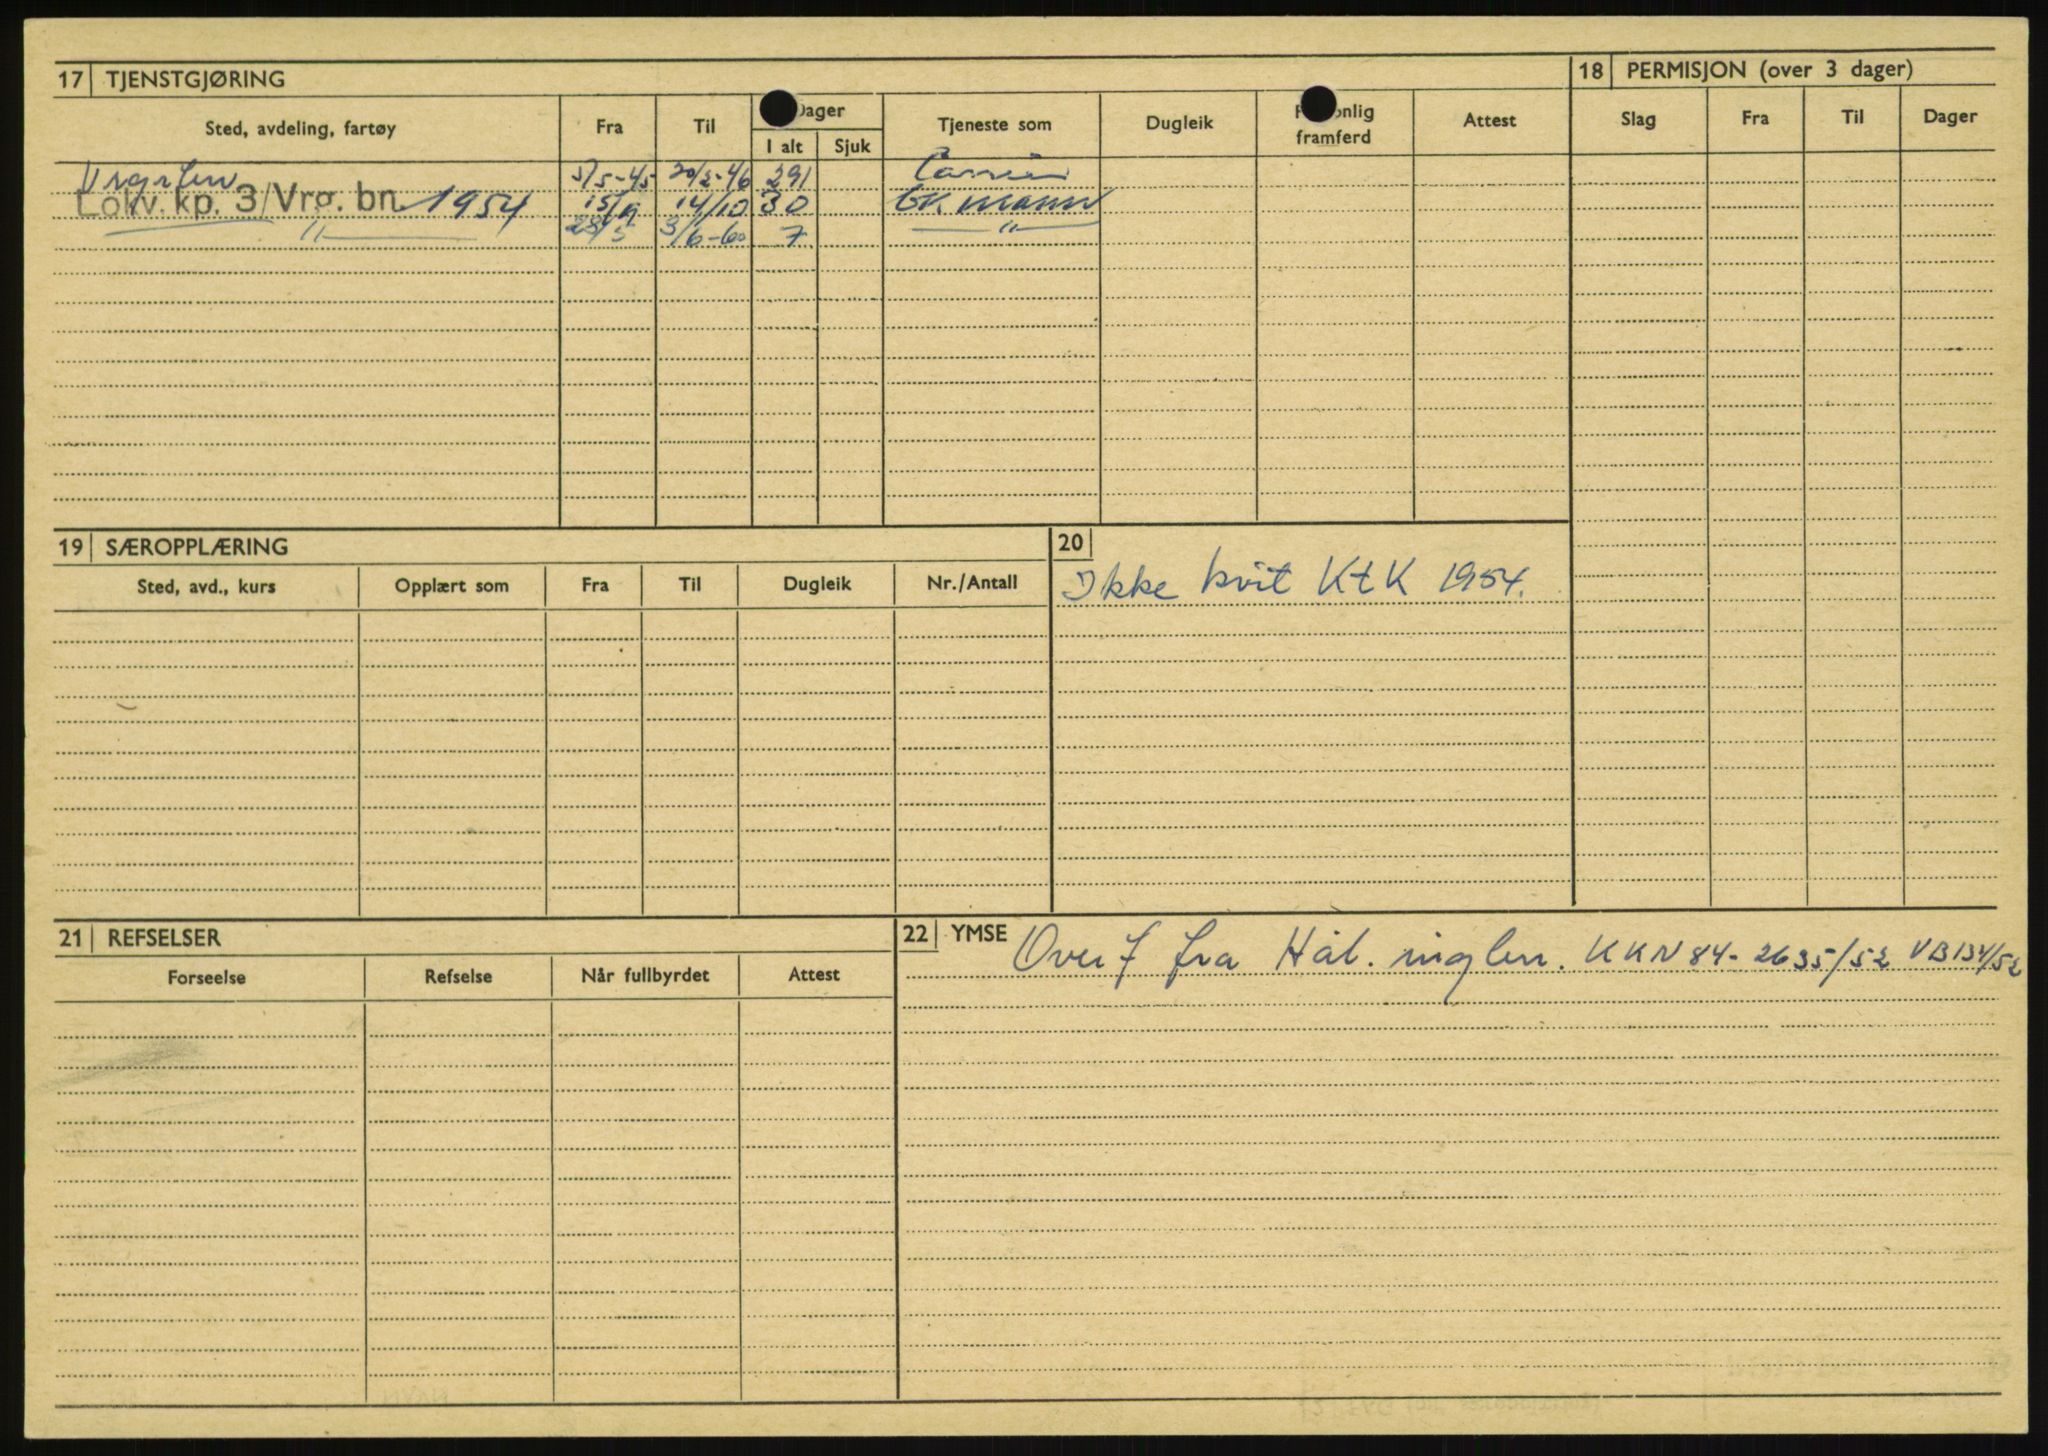 17 TJENSTGJØRING 18 PERMISJON (over 3 dager)
Sted, avdeling, fartøy Fra Til Dager Tjeneste som Dugleik framferd Attest Slag Fra Til Dager
I alt Sjuk
5/5-45 20/2-46 291
Lokv. kp. 3/Vrg. bn. 1954 15/9 14/10 30 GK. mann
" 28/5 3/6-60 7 "
19 SÆROPPLÆRING 20
Sted, avd., kurs Opplært som Fra Til Dugleik Nr./Antall
Ikke kvit KtK 1954.
21 REFSELSER 22 YMSE
Overf fra Hål. KKN 84-2635/52 VB 134/52
Forseelse Refselse Når fullbyrdet Attest